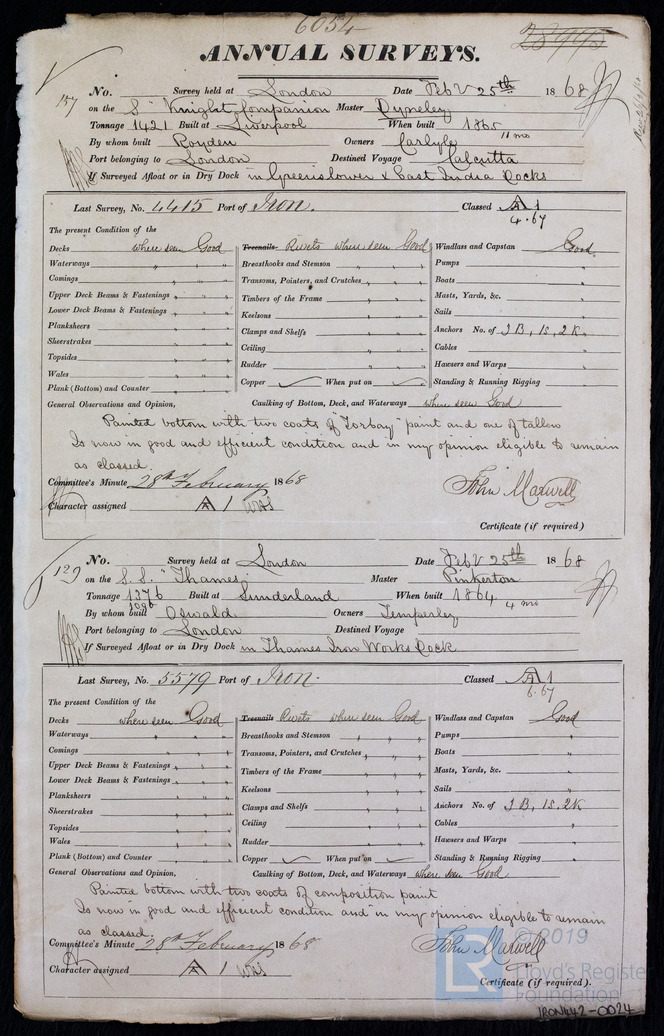 6054
ANNUAL SURVEYS.
157 No. Survey held at London Date Feby 25th 1868
on the S "Knight Companion Master Dyneley
Tonnage 1421 Built at Liverpool When built 1865 11 mo
By whom built Royden Owners Carlyle
Port belonging to London Destined Voyage Calcutta
If Surveyed Afloat or in Dry Dock in Greens lower & East India Docks
Last Survey, No. 4415 Port of Iron. Classed A1
4.67
The present Condition of the
Decks where seen Good Treenails Rivets where seen Good Windlass and Capstan Good.
Waterways " " " Breasthooks and Stemson " " Pumps "
Comings " " " Transoms, Pointers, and Crutches " " " Boats "
Upper Deck Beams & Fastenings " " " Timbers of the Frame " " " Masts, Yards, &c. "
Lower Deck Beams & Fastenings " " " Keelsons " " " Sails "
Planksheers " " " Clamps and Shelfs " " " Anchors No. of 3B, 1S, 2K.
Sheerstrakes " " " Ceiling " " " Cables "
Topsides " " " Rudder " " " Hawsers and Warps "
Wales " " "
Plank (Bottom) and Counter " " " Copper When put on Standing & Running Rigging "
General Observations and Opinion, Caulking of Bottom, Deck, and Waterways where seen Good
Painted bottom with two coats of "Torbay" paint and one of tallow
Is now in good and efficient condition and in my opinion eligible to remain
as classed.
Committee's Minute 28th February 1868
John Maxwell
Character assigned A 1
Certificate (if required)
129 No. Survey held at London Date Feby 25th 1868
on the S.S. "Thames" Master Pinkerton
Tonnage 1376 Built at Sunderland When built 1864 4 mo
1096
By whom built Oswald Owners Temperley
Port belonging to London Destined Voyage
If Surveyed Afloat or in Dry Dock in Thames Iron Works Dock
Last Survey, No. 5579 Port of Iron. Classed A1
6.67
The present Condition of the
Decks where seen Good Treenails Rivets where seen Good Windlass and Capstan Good
Waterways " " " Breasthooks and Stemson " " " Pumps "
Comings " " " Transoms, Pointers, and Crutches " " " Boats "
Upper Deck Beams & Fastenings " " " Timbers of the Frame " " " Masts, Yards, &c. "
Lower Deck Beams & Fastenings " " " Keelsons " " " Sails "
Planksheers " " " Clamps and Shelfs " " " Anchors No. of 3B, 1S. 2K
Sheerstrakes " " " Ceiling " " " Cables "
Topsides " " " Rudder " " " Hawsers and Warps "
Wales " " "
Plank (Bottom) and Counter " " " Copper When put on Standing & Running Rigging "
General Observations and Opinion, Caulking of Bottom, Deck, and Waterways where seen Good
Painted bottom with two coats of composition paint
Is now in good and efficient condition and in my opinion eligible to remain
as classed.
Committee's Minute 28th February 1868
John Maxwell
Character assigned A 1
Certificate (if required).
© 2019
LR Lloyd's Register
Foundation
IRON442-0024